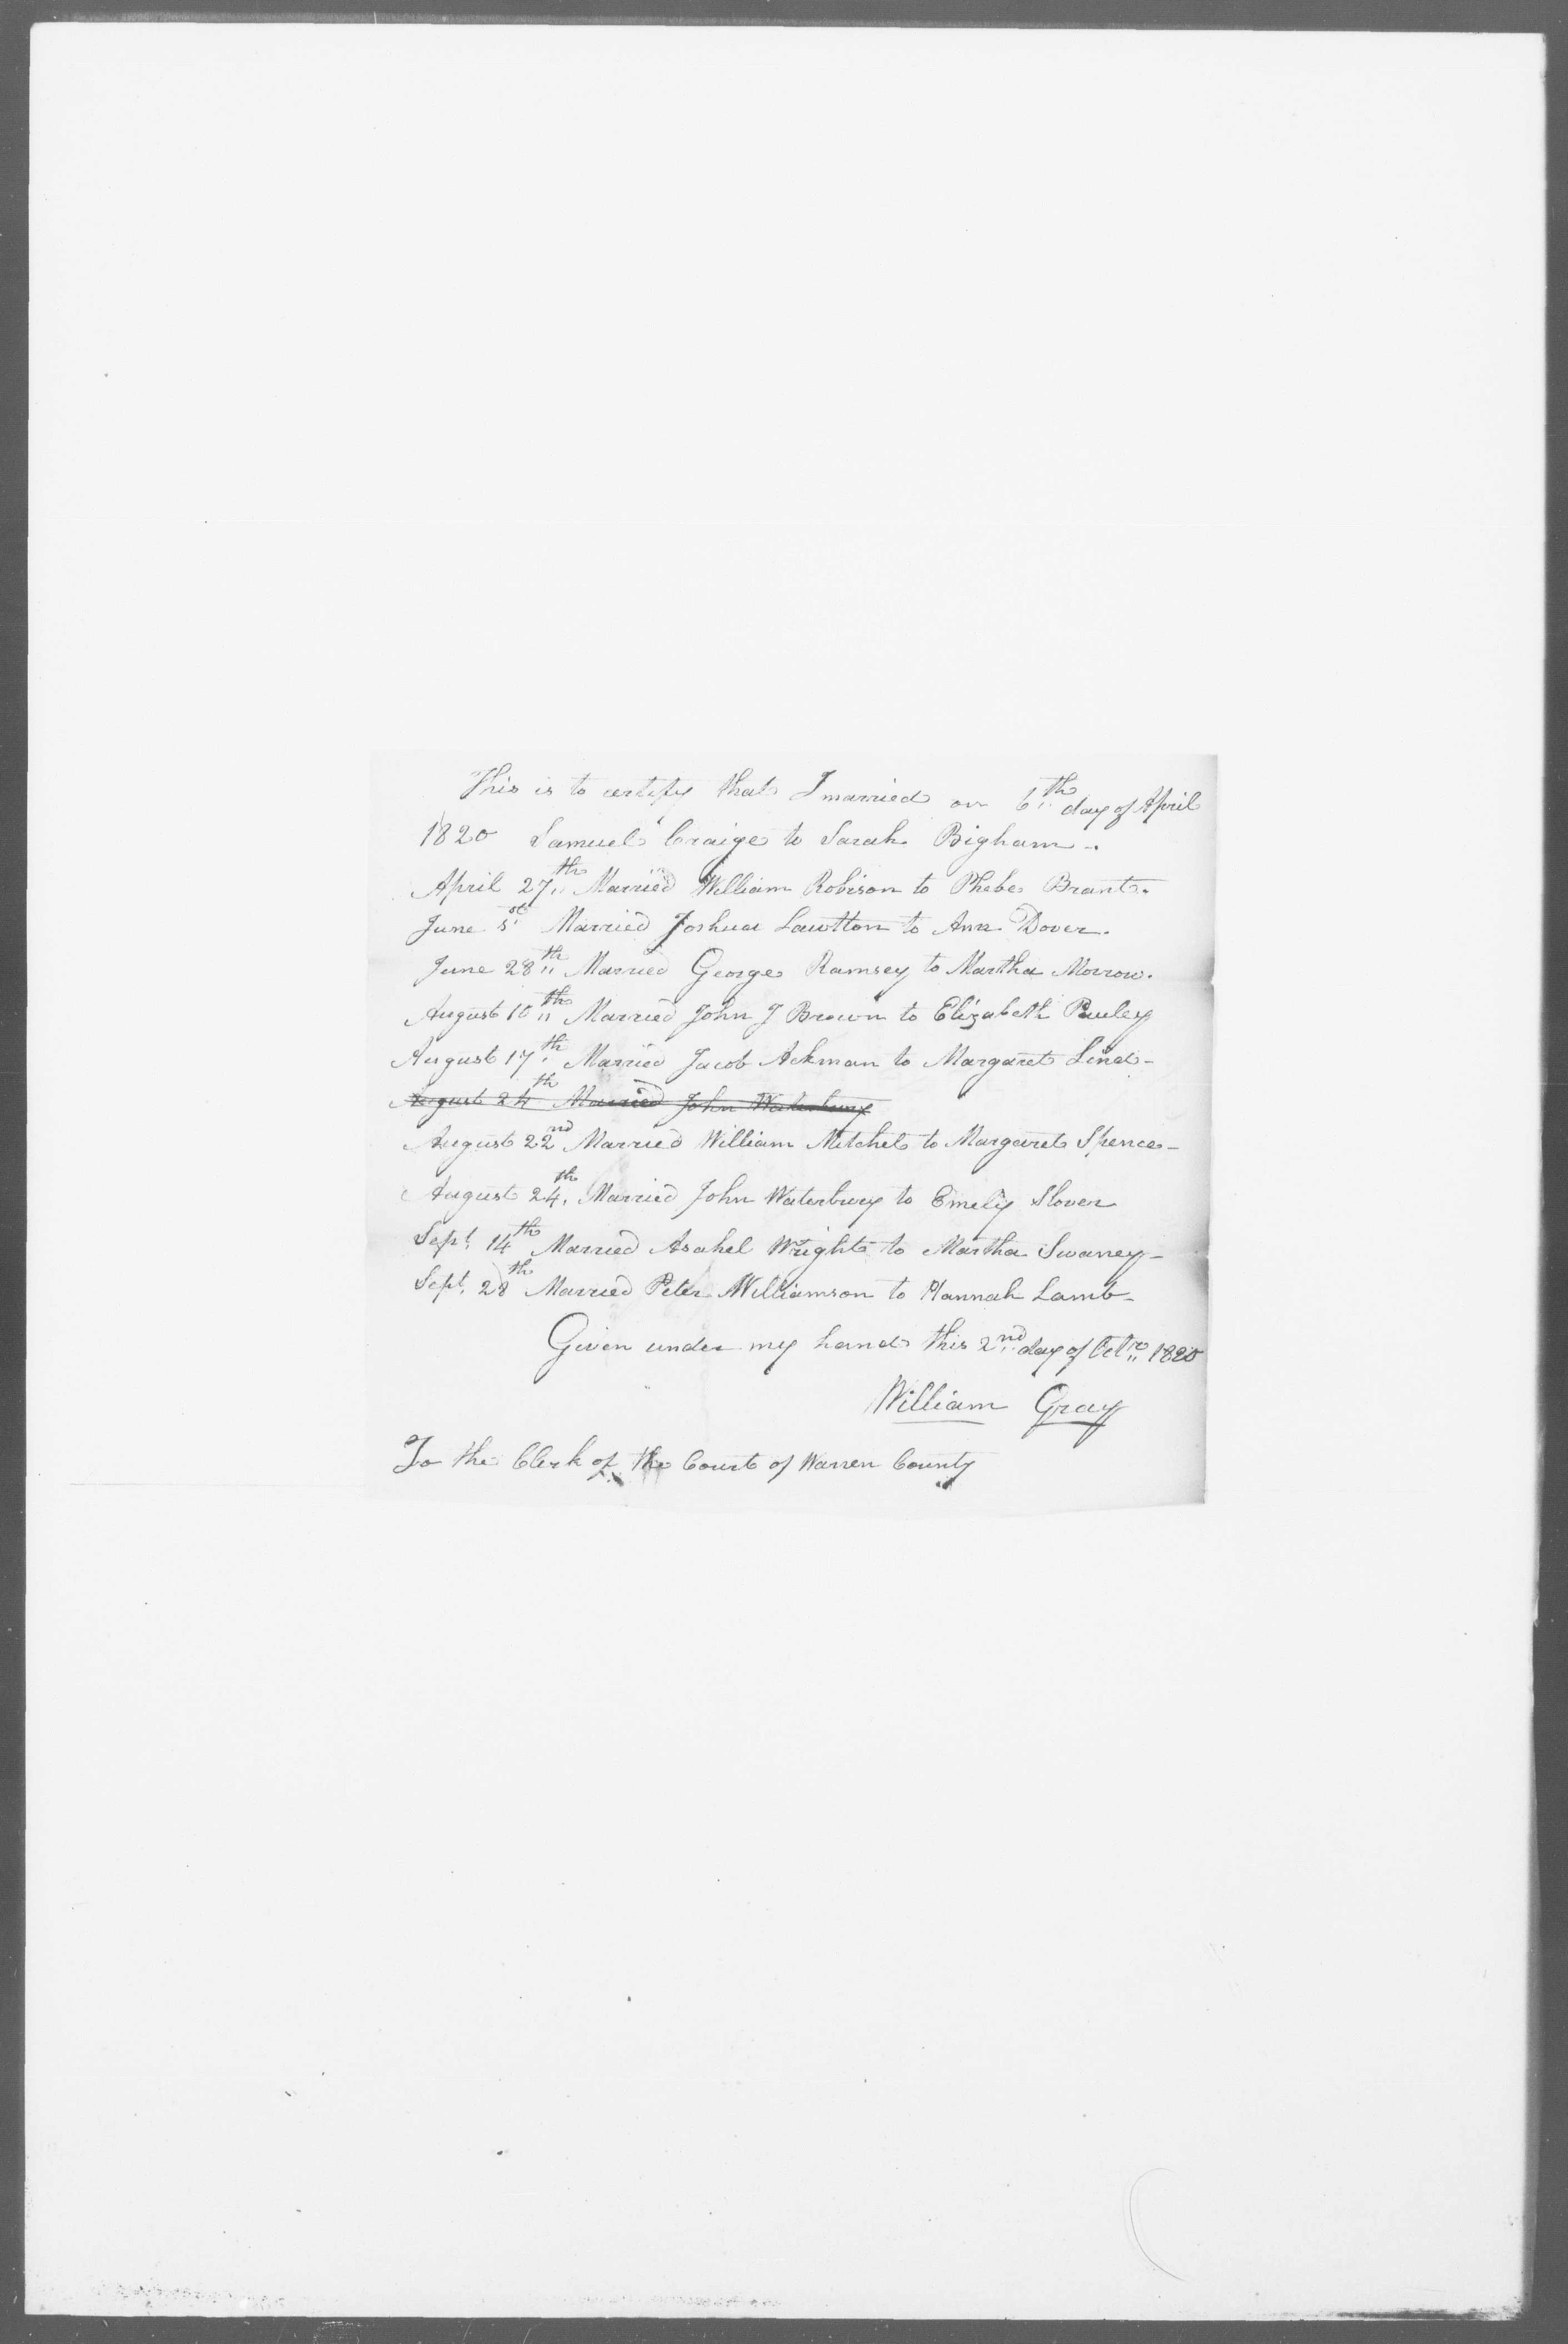 This is to certify that I married on 6th day of April
1820 Samuel Craige to Sarah Bigham.
April 27th Married William Robison to Phebe Brant.
June Married Joshua Lawtton to Ann Dover.
June 28th Married George Ramsey to Martha Morrow.
August 10th Married John J Brown to Elizabeth Pauley
August 17th Married Jacob Ackman to Margaret Lind-
August 24th Married John Waterbury
August 22nd Married William Mitchel to Margaret Spence-
August 24th Married John Waterbury to Emely Slover
Sept. 14th Married Asahel Wright to Martha Swaney-
Sept. 28th Married Peter Williamson to Hannah Lamb-
Given under my hand this 2nd day of Octr 1820
William Gray
To the Clerk of the Court of Warren County